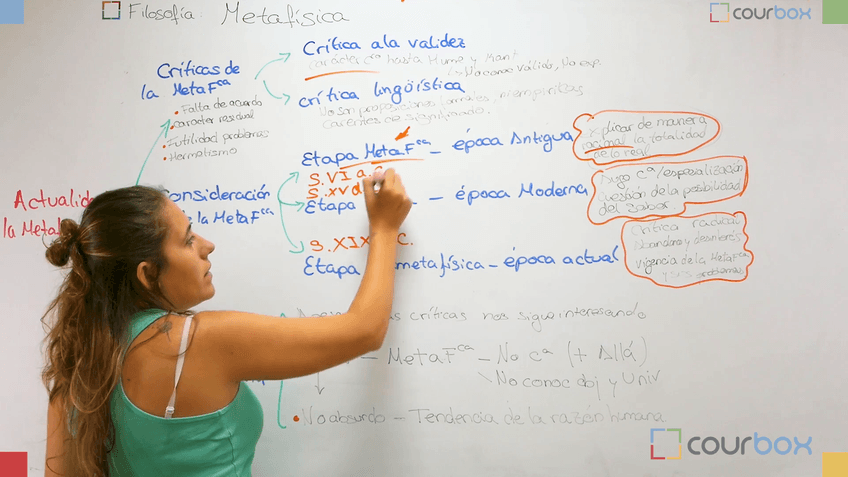 Filosofía: Metafísica
courbox
Crítica a la validez
carácter cª hasta Hume y Kant
No conoc válido, No exp.
Críticas de
la MetaFca
• Falta de acuerdo
• Carácter residual
• Inutilidad problemas
• Hermetismo
crítica lingüística
No son proposiciones formales, ni empíricas
Carentes de significado.
Etapa MetaFca – época Antigua
S. VI a.
explicar de manera
racional la totalidad
de lo real
S. XV d
Etapa – época Moderna
Auge cª/especialización
Cuestión de la posibilidad
del Saber
S. XIX C.
Etapa metafísica – época actual
Crítica radical
Abandono y desinterés
vigencia de la MetaFca
y sus problemas
Actualid
la Meta
Consideración
de la MetaFca
las críticas nos sigue interesando
– MetaFca – No cª (+ Allá)
No conoc obj y Univ
• No absurdo – Tendencia de la razón humana
courbox